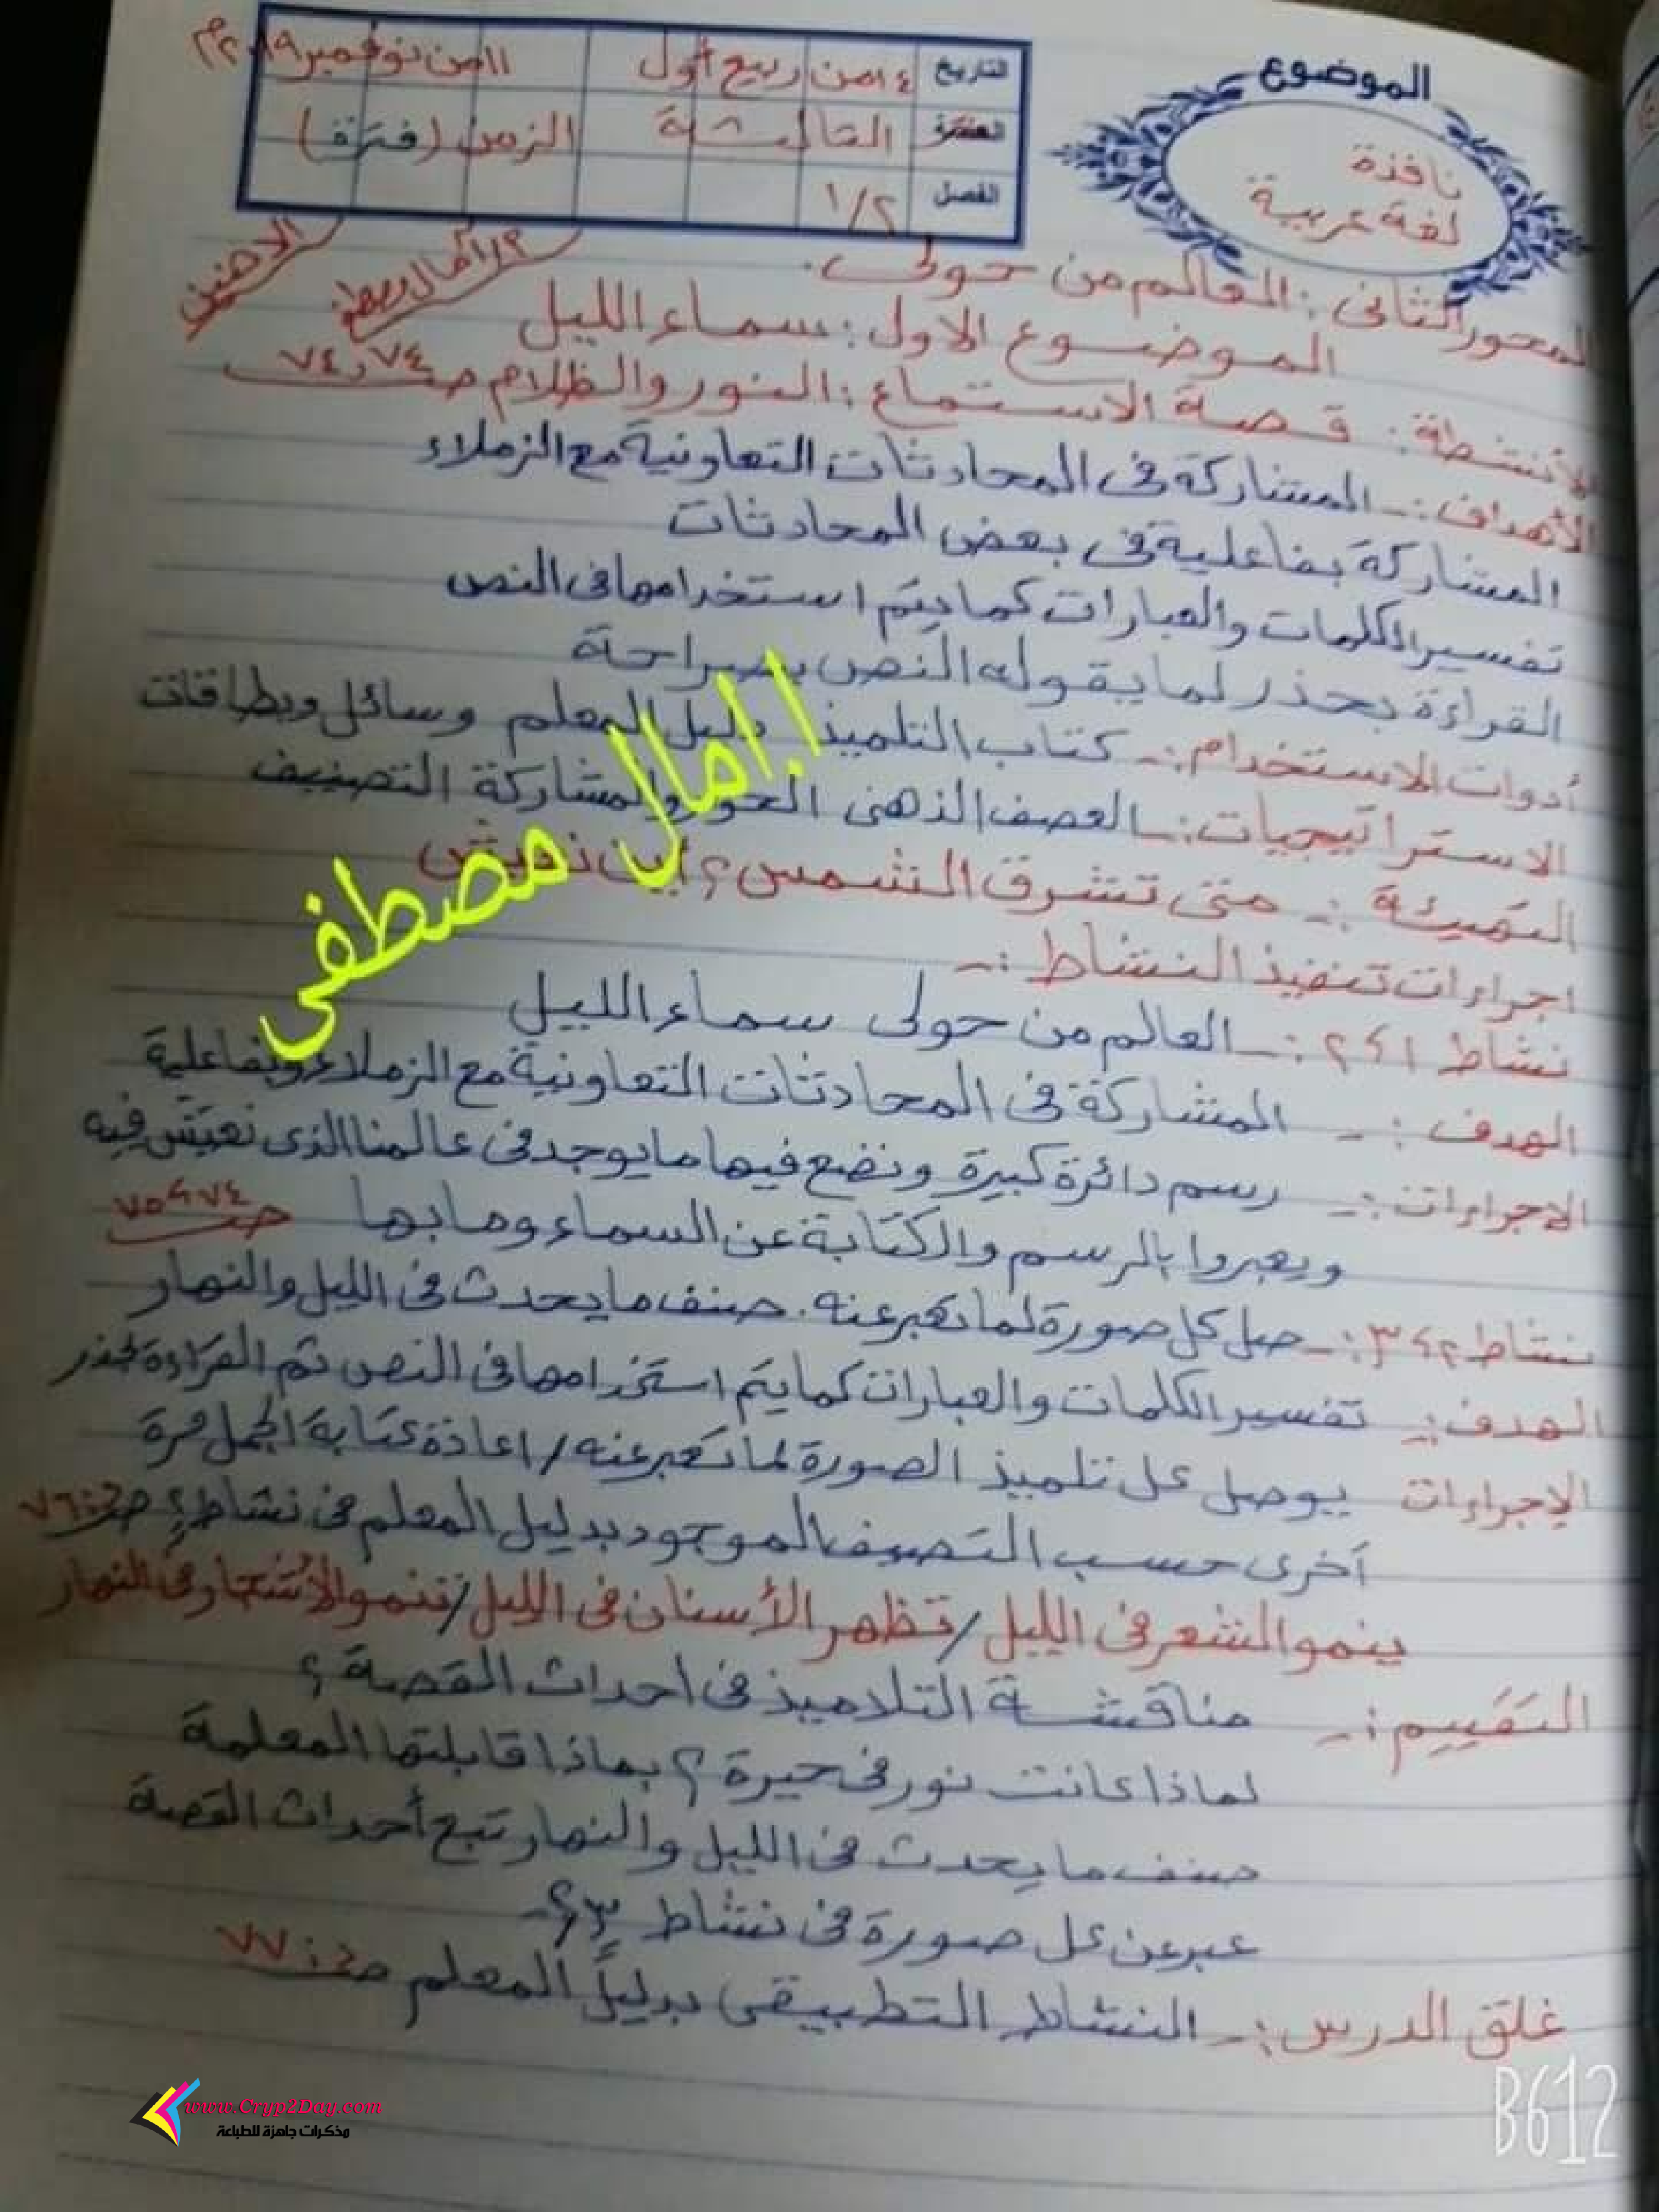 الموضوع
نافذة
لغة عربية
التاريخ ١٤ من ربيع أول ١١ من نوفمبر ٢٠١٩م
الفترة الثالثة الزمن (فترة)
الفصل ١/٢
أ/ آمال مصطفى
الاثنين
المحور الثانى : العالم من حولى .
الموضوع الاول : سماء الليل
الأنشطة : قصة الاستماع : النور والظلام صـ ٧٤، ٧٤
الأهداف :- المشاركة فى المحادثات التعاونية مع الزملاء
المشاركة بفاعلية فى بعض المحادثات
تفسير الكلمات والعبارات كما يتم استخدامها فى النص
القراءة بحذر لما يقوله النص بصراحة
أدوات الاستخدام :- كتاب التلميذ دليل المعلم وسائل وبطاقات
الاستراتيجيات :- العصف الذهنى الحوار والمشاركة التصنيف
التهيئة :- متى تشرق الشمس ؟ أين نعيش
اجراءات تنفيذ النشاط :-
نشاط ١ ، ٢ :- العالم من حولى سماء الليل
الهدف :- المشاركة فى المحادثات التعاونية مع الزملاء وبفاعلية
الاجراءات :- رسم دائرة كبيرة ونضع فيها ما يوجد فى عالمنا الذى نعيش فيه
ويعبروا بالرسم والكتابة عن السماء وما بها صـ ٧٤ ، ٧٥
نشاط ٢ ، ٣ :- صل كل صورة لما تعبر عنه . صنف ما يحدث فى الليل والنهار
الهدف :- تفسير الكلمات والعبارات كما يتم استخدامها فى النص ثم القراءة بحذر
الإجراءات يوصل كل تلميذ الصورة لما تعبر عنه / اعادة كتابة الجمل مرة
أخرى حسب التصنيف الموجود بدليل المعلم فى نشاط ٤ صـ ٧٦
ينمو الشعر فى الليل / تظهر الأسنان فى الليل / تنمو الأشجار فى النهار
التقييم :- مناقشة التلاميذ فى احداث القصة ؟
لماذا كانت نور فى حيرة ؟ بماذا قابلتها المعلمة
صنف ما يحدث فى الليل والنهار تتبع أحداث القصة
عبر عن كل صورة فى نشاط ٣ ؟-
غلق الدرس :- النشاط التطبيقى بدليل المعلم صـ ٧٧
ا. امال مصطفى
www.Cryp2Day.com
مذكرات جاهزة للطباعة
B612